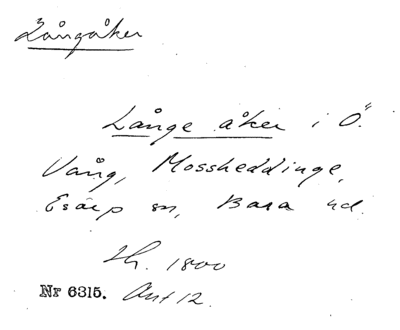 Långåker
Långe åker i Ö.
Vång, Mossheddinge,
Esarp sn, Bara hd.
Sk. 1800
Nr 6315. Akt 12.